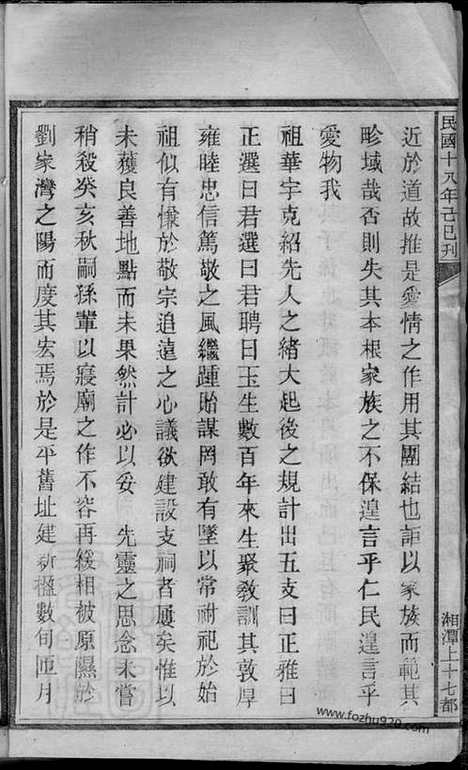 民國十八年己巳刊
湘潭上十七都
近於道故推是愛情之作用其團結也詎以家族而範其
畛域哉否則失其本根家族之不保遑言乎仁民遑言乎
愛物我
祖華宇克紹先人之緒大起後之規計出五支曰正雅曰
正選曰君選曰君聘曰玉生數百年來生聚教訓其敦厚
雍睦忠信篤敬之風繼踵貽謀罔敢有墜以常祔祀於始
祖似有慊於敬宗追遠之心議欲建設支祠者屢矣惟以
未獲良善地點而未果然計必以妥 先靈之思念未嘗
稍殺癸亥秋嗣孫輩以寢廟之作不容再緩相被原隰於
劉家灣之陽而度其宏焉於是平舊址建新楹數旬匝月
www.fozhu920.com